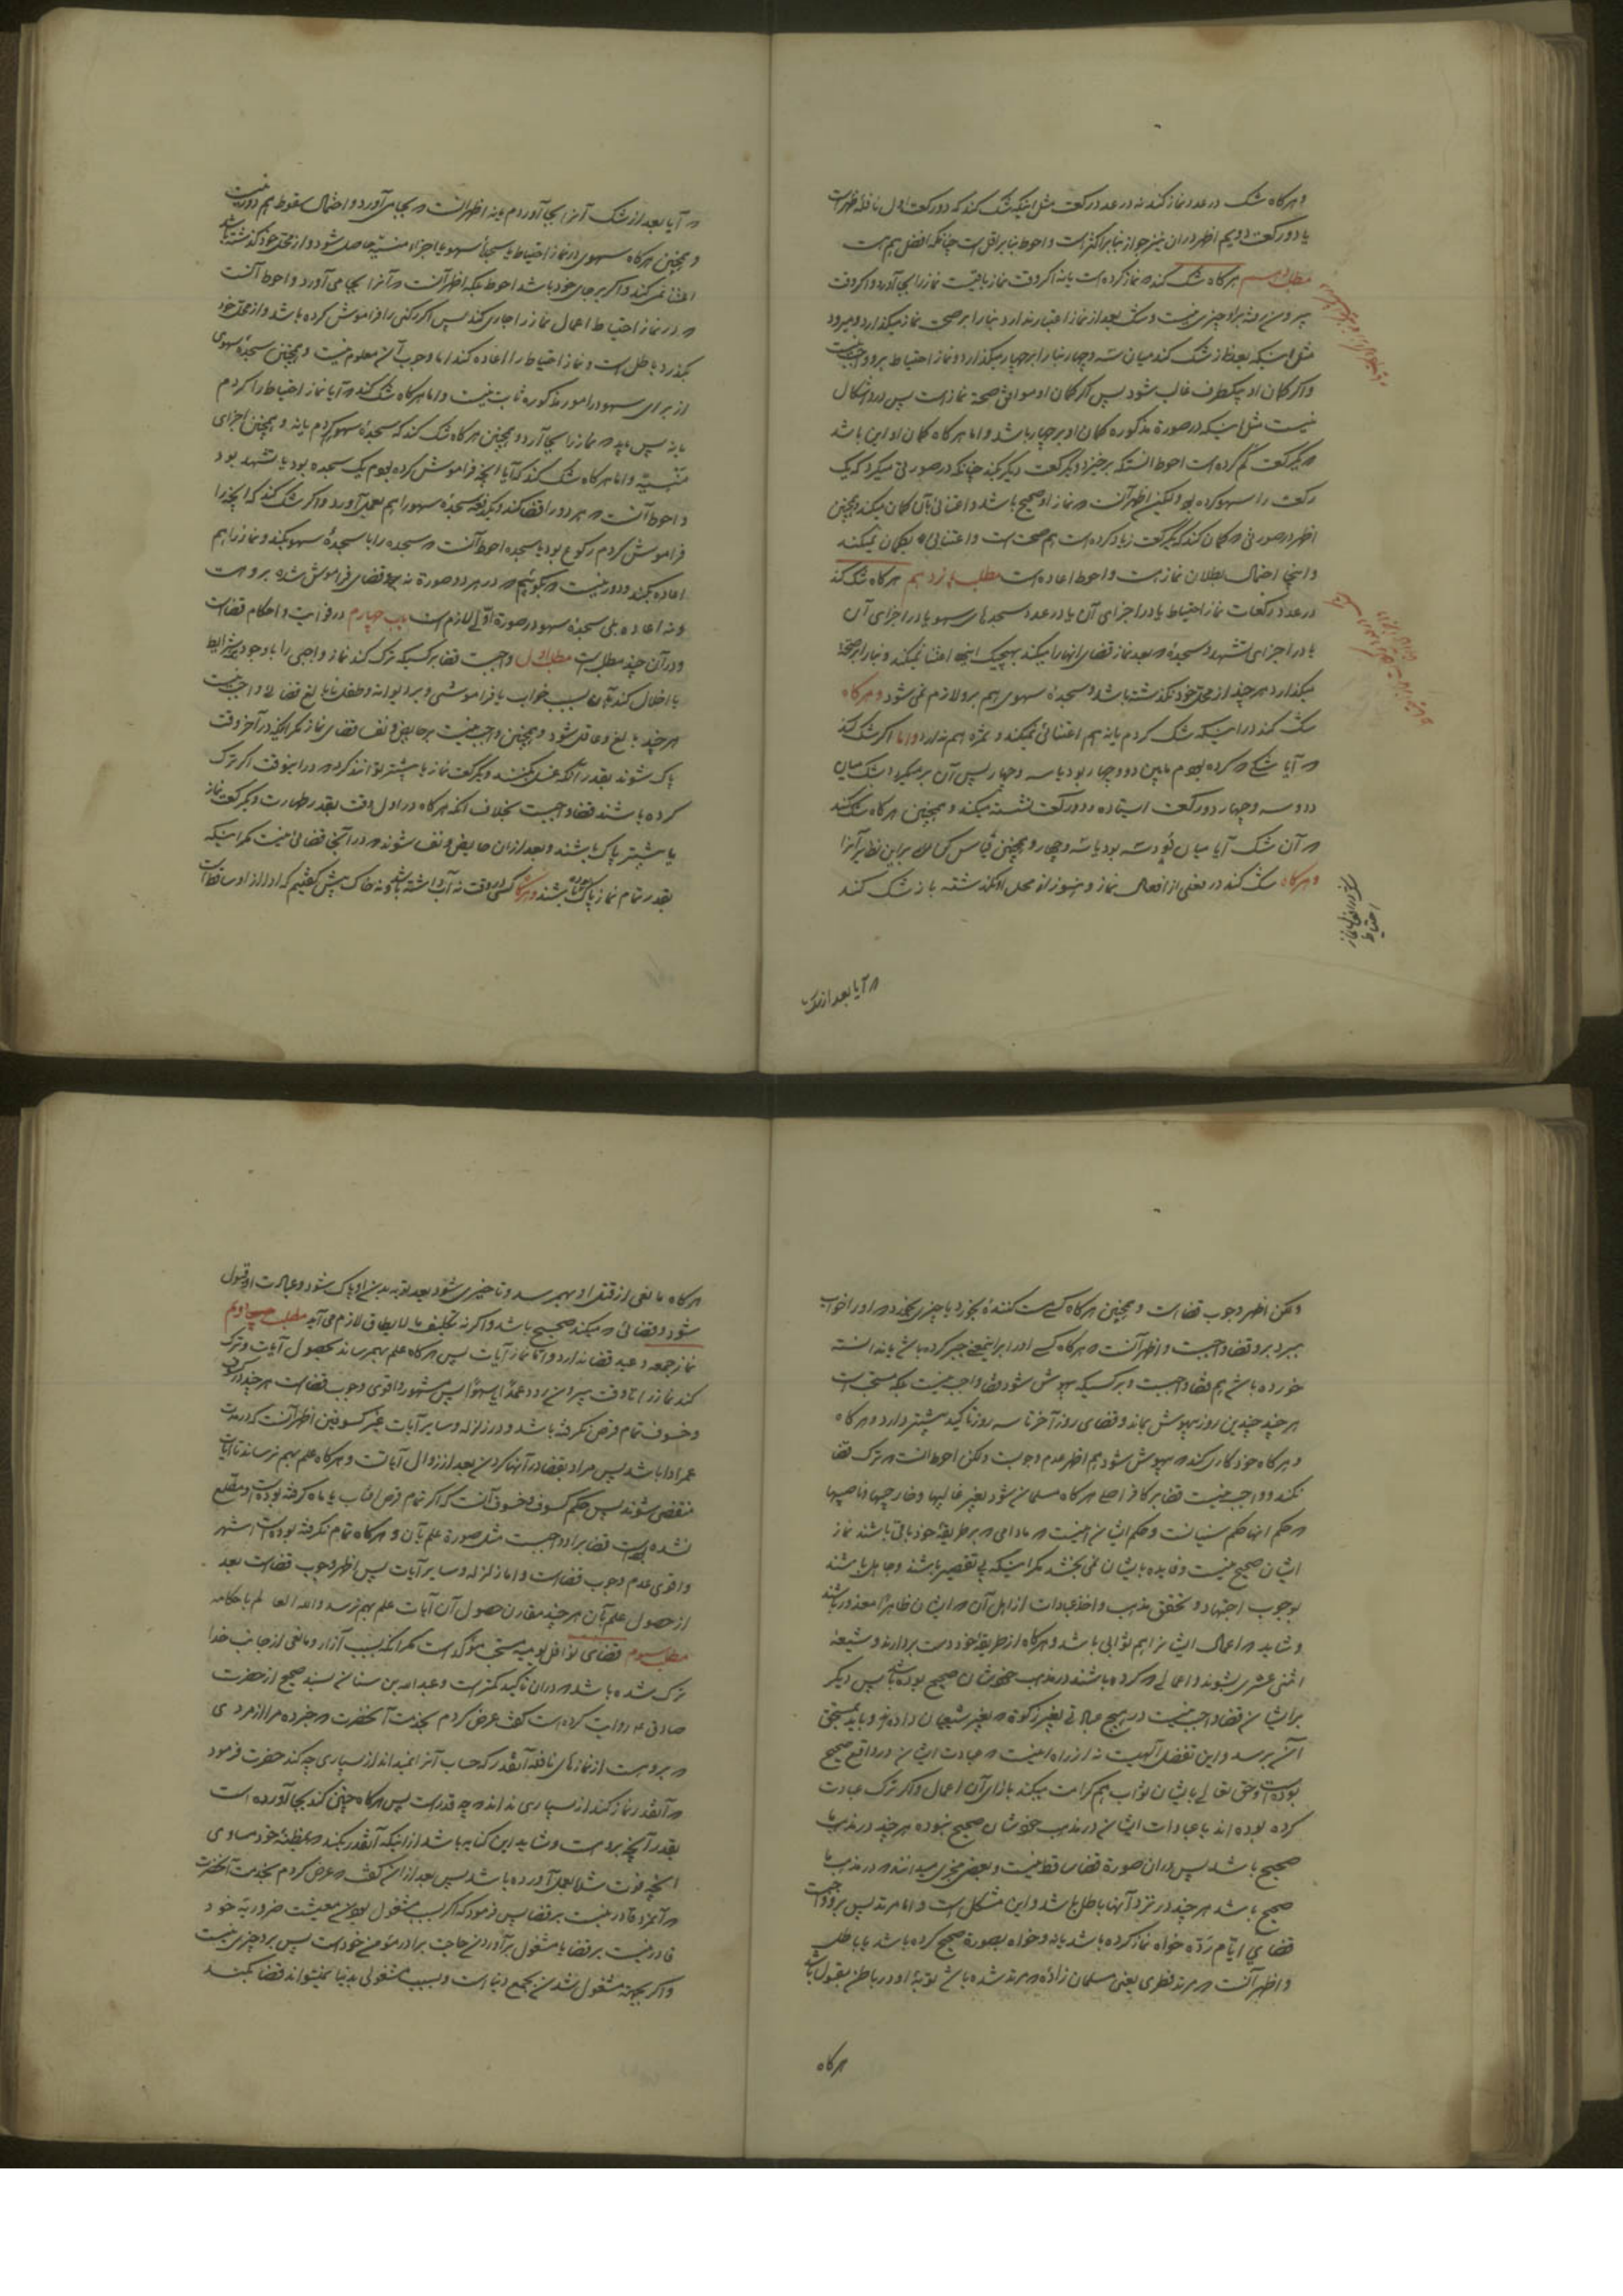 و هرگاه شک در عدد نماز کند نه در عدد رکعت مثل اینکه شک کند که دو رکعت اول نافله ظهر است
یا دو رکعت دویم اظهر در آن نیز جواز بنا بر اکثر است و احوط بنا بر اقل است چنانکه افضل هم است
مطلب دهم هرگاه شک کند که نماز کرده است یا نه اگر وقت نماز باقیست نماز را بجا آورد و اگر وقت
بیرون رفته بر او چیزی نیست و شک بعد از نماز اعتبار ندارد بنا را بر صحت نماز میگذارد و میرود
مثل اینکه بعد نماز شک کند میان سه و چهار بنا را بر چهار میگذارد و نماز احتیاط بر او واجب نیست
و اگر گمان او بیکطرف غالب شود پس اگر گمان او موافق صحة نماز است پس در او اشکال
نیست مثل اینکه در صورة مذکوره گمان او بر چهار باشد و اما هرگاه گمان او این باشد
که یکرکعت کم کرده است احوط آنستکه برخیزد و یکرکعت دیگر بکند چنانکه در صورتی میکرد که یک
رکعت را سهو کرده بود ولیکن اظهر آنست که نماز او صحیح باشد و اعتنائی بآن گمان میکند و همچنین
اظهر در صورتی که گمان کند که یکرکعت زیاد کرده است هم صحت است و اعتنائی بگمان نمیکند
و اینجا احتمال بطلان نماز هست و احوط اعاده است مطلب یازدهم هرگاه شک کند
در عدد رکعات نماز احتیاط یا در اجزای آن یا در عدد سجدهای سهو یا در اجزای آن
یا در اجزای تشهد و سجدۀ که بعد نماز قضای انها را میکند بهیچیک اینها اعتنا نمیکند و بنا را بر صحة
میگذارد هر چند از محل خود نگذشته باشد و سجدۀ سهوی هم بر او لازم نمی شود و هرگاه
شک کند در اینکه شک کردم یا نه هم اعتنائی نمیکند و ثمره هم ندارد و اما اگر شک کند
که آیا شکی که کرده بودم مابین دو و چهار بود یا سه و چهار پس آن بر میگردد بشک میان
دو و سه و چهار دو رکعت ایستاده و دو رکعت نشسته میکند و همچنین هرگاه شک کند
که آن شک آیا میان دو و سه بود یا سه و چهار و همچنین قیاس کن حال سایر این نظایر آنرا
و هرگاه شک کند در بعضی از افعال نماز و هنوز از محل او نگذشته باز شک کند
که آیا بعد از شک
که آیا بعد از شک آنرا بجا آوردم یا نه اظهر آنست که بجا می آورد و احتمال سقوط هم دور نیست
و همچنین هرگاه سهوی در نماز احتیاط یا سجدۀ سهو یا اجزاء منسیّه حاصل شود و از محل خود گذشته باشد
اعتنا نمی کند و اگر بر جای خود باشد احوط بلکه اظهر آنست که آنرا بجا می آورد و احوط آنست
که در نماز احتیاط اعمال نماز را جاری کند پس اگر رکنی را فراموش کرده باشد و از محل خود
بگذرد باطل است و نماز احتیاط را اعاده کند اما وجوب آن معلوم نیست و همچنین سجدۀ سهوی
از برای سهو در امور مذکوره ثابت نیست و اما هرگاه شک کند که آیا نماز احتیاط را کردم
یا نه پس باید که نماز را بجا آرد و همچنین هرگاه شک کند که سجدۀ سهو کردم یا نه و همچنین اجزای
منسیّه و اما هرگاه شک کند که آیا آنچه فراموش کرده بودم یک سجده بود یا تشهد بود
و احوط آنست که هر دو را قضا کند و یکدفعه سجدۀ سهو را هم بعمل آورد و اگر شک کند که آنچه را
فراموش کردم رکوع بود یا سجده احوط آنست که سجده را با سجدۀ سهو بکند و نماز را هم
اعاده بکند و دور نیست که بگوئیم که در هر دو صورة نه قضای فراموش شده بر او هست
و نه اعاده بلی سجدۀ سهو در صورة اوّلی لازم است باب چهارم در فوایت و احکام قضاست
و در آن چند مطلب است مطلب اول واجبست قضا بر کسیکه ترک کند نماز واجبی را با وجود شرایط
یا اخلال کند بآن بسبب خواب یا فراموشی و بر دیوانه و طفل نابالغ قضائی واجب نیست
هر چند بالغ و عاقل شود و همچنین واجب نیست بر حایض و نفسا قضای نماز مگر اینکه در آخر وقت
پاک شوند بقدر آنکه غسل بکنند و یکرکعت نماز یا بیشتر توانند کرد که در اینوقت اگر ترک
کرده باشند قضا واجبست بخلاف آنکه هرگاه در اول وقت بقدر طهارت و یکرکعت نماز
یا بیشتر پاک باشند و بعد از آن حایض و نفسا شوند که در آنجا قضائی نیست مگر اینکه
بقدر تمام نماز پاک بوده باشند و هرگاه کسی در وقت نه آب داشته باشد و نه خاک پیش گفتیم که ادا از او ساقط است
ولکن اظهر وجوب قضاست و همچنین هرگاه کسی مست کنندۀ بخورد یا چیزی بخورد که او را خواب
ببرد بر او قضا واجبست و اظهر آنست که هرگاه کسی او را بر اینمعنی جبر کرده باشد یا ندانسته
خورده باشد هم قضا واجبست و بر کسیکه بیهوش شود قضا واجب نیست بلکه مستحب است
هر چند چندین روز بیهوش بماند و قضای روز آخر تا سه روز تاکید بیشتر دارد و هرگاه
و هرگاه خود کاری کند که بیهوش شود هم اظهر عدم وجوبست ولکن احوط آنست که ترک قضا
نکند و واجب نیست قضا بر کافر اصلی هرگاه مسلمان شود بغیر غالیها و خارجیها و ناصبیها
که حکم انها حکم سنیانست و حکم ایشان اینست که مادامی که بر طریقۀ خود باقی باشند نماز
ایشان صحیح نیست و فایده بایشان نمی بخشد مگر اینکه بی تقصیر باشند و جاهل باشند
بوجوب اجتهاد و تحقق مذهب و اخذ عبادات از اهل آن که ایشان ظاهرا معذور باشند
و شاید که اعمال ایشانرا هم ثوابی باشد و هرگاه از طریقۀ خود دست بردارند و شیعۀ
اثنی عشری بشوند و اعمالی که کرده باشند در مذهب خودشان صحیح بوده باشد پس دیگر
بر ایشان قضا واجب نیست در هیچ عبادتی بغیر زکوة که بغیر شیعیان داده اند و باید بمستحق
آن برسد و این تفضل الهیست نه از راه اینست که عبادت ایشان در واقع صحیح
بوده است و حق تعالی بایشان ثواب هم کرامت میکند بازای آن اعمال و اگر ترک عبادت
کرده بوده اند یا عبادات ایشان در مذهب خودشان صحیح نبوده هر چند در مذهب ما
صحیح باشد پس در آن صورة قضا ساقط نیست و بعضی مجزی میدانند که در مذهب ما
صحیح باشد هر چند در نزد آنها باطل باشد و این مشکل است و اما مرتد پس بر او واجبست
قضای ایّام ردّه خواه نماز کرده باشد یا نه و خواه بصورة صحیح کرده باشد یا باطل
و اظهر آنست که مرتد فطری یعنی مسلمان زادۀ که مرتد شده باشد توبۀ او در باطن مقبول باشد
هرگاه
هرگاه مانعی از قتل او بهم رسد و تاخیری شود بعد توبه بدن او پاک شود و عبادت او قبول
شود و قضائی که میکند صحیح باشد و اگر نه تکلیف ما لا یطاق لازم می آید مطلب دویم
نماز جمعه و عید قضا ندارد و اما نماز آیات پس هرگاه علم بهم رساند بحصول آیات و ترک
کند نماز را تا وقت بیرون رود عمداً یا سهواً پس مشهور و اقوی وجوب قضاست هر چند در کسوف
و خسوف تمام قرص نگرفته باشد و در زلزله و سایر آیات غیر کسوفین اظهر آنست که در مدت
عمر ادا باشد پس مراد بقضا در آنها کردن بعد از زوال آیاتست و هرگاه علم بهم نرساند تا آیات
منقضی شوند پس حکم کسوف و خسوف آنست که اگر تمام قرص افتاب یا ماه گرفته بوده است و مطلع
نشده است قضا بر او واجبست مثل صورة علم بآن و هرگاه تمام نگرفته بوده است اشهر
و اقوی عدم وجوب قضاست و اما زلزله و سایر آیات پس اظهر وجوب قضاست بعد
از حصول علم بآن هر چند مقارن حصول آن آیات علم بهم نرسد و الله العالم باحکامه
مطلب سیوم قضای نوافل یومیه مستحب مؤکد است مگر آنکه بسبب آزار و مانعی از جانب خدا
ترک شده باشد که در آن تاکید کمتر است و عبدالله بن سنان بسند صحیح از حضرت
صادق ع روایت کرده است گفت عرض کردم بخدمت آنحضرت که خبر ده مرا از مردی
که بر او هست از نمازهای نافله آنقدر که حساب آنرا نمیداند از بسیاری چه کند حضرت فرمود
که آنقدر نماز کند از بسیاری نداند که چه قدر است پس هرگاه چنین کند بجا آورده است
بقدر آنچه بر او هست و شاید این کنایه باشد از اینکه آنقدر بکند که بمظنۀ خود مساوی
آنچه فوت شده بعمل آورده باشد پس بعد از این گفت که عرض کردم بخدمت آنحضرت
که آنمرد قادر نیست بر قضا پس فرمود که اگر بسبب مشغول بودن معیشت ضروریۀ خود
قادر نیست بر قضا یا مشغول برآوردن حاجت برادر مؤمن خود است پس بر او چیزی نیست
و اگر بجهة مشغول شدن بجمع دنیا است و بسبب مشغولی بدنیا نمیتواند قضا بکند